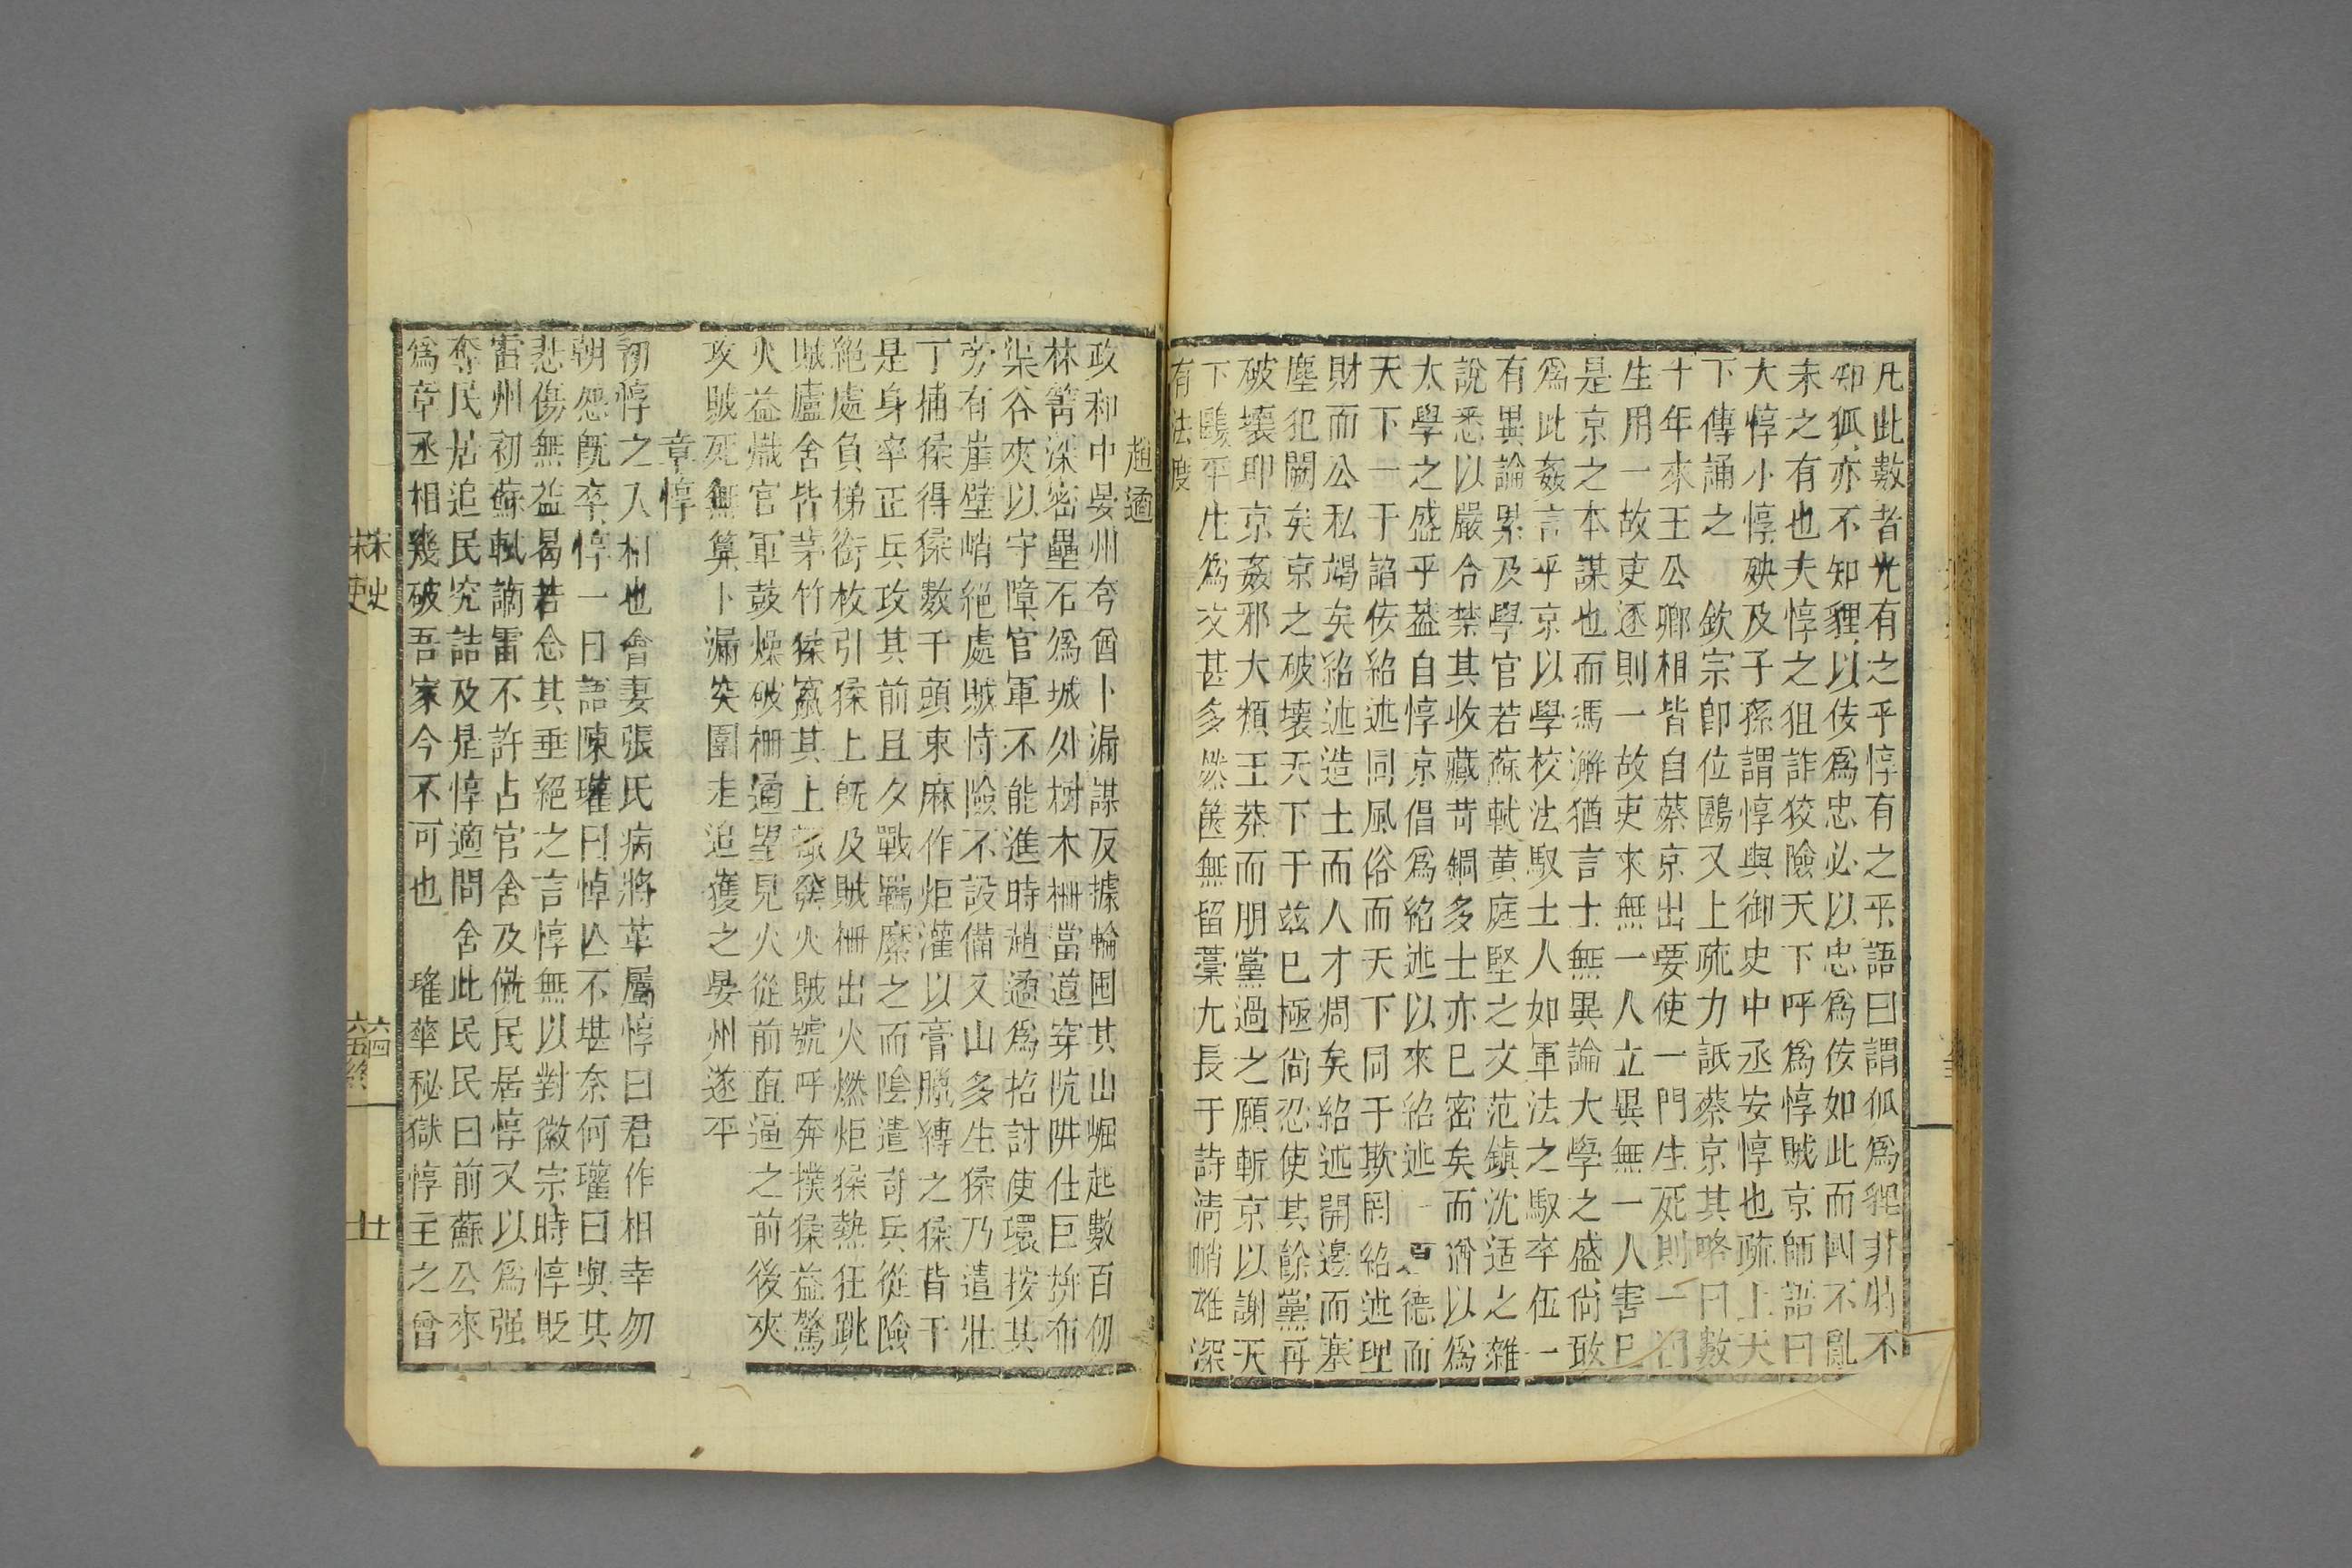 凡此數者光有之乎惇有之乎語曰謂狐爲貍非特不
知狐亦不知貍以佞爲忠必以忠爲佞如此而國不亂
未之有也夫惇之狙詐狡險天下呼爲惇賊京師語曰
大惇小惇殃及子孫謂惇與御史中丞安惇也疏上天
下傳誦之 欽宗卽位鷗又上疏力詆蔡京其略曰數
十年來王公卿相皆自蔡京出要使一門生死則一門
生用一故吏逐則一故吏來無一人立異無一人害已
是京之本謀也而馮澥猶言士無異論大學之盛尙敢
爲此姦言乎京以學校法馭士人如軍法之馭卒伍一
有異論累及學官若蘇軾黄庭堅之文范鎮沈适之雜
說悉以嚴令禁其收藏苛錮多士亦已密矣而澥以爲
太學之盛乎葢自惇京倡爲紹述以來紹述一 德而
天下一于諂佞紹述同風俗而天下同于欺罔紹述理
財而公私竭矣紹述造士而人才凋矣紹述開邊而塞
塵犯闕矣京之破壞天下于兹已極尙忍使其餘黨再
破壞耶京姦邪大類王莽而朋黨過之願斬京以謝天
下鷗平生爲文甚多然篋無留藁尤長于詩淸峭雄深
有法度
趙遹
政和中晏州夸酋卜漏謀反據輪囤其山崛起數百仞
林箐深密壘石爲城外樹木柵當道穿阬阱仕巨枿布
渠谷夾以守障官軍不能進時趙遹爲招討使環按其
旁有崖壁峭絕處賊恃險不設備又山多生猱乃遣壯
丁捕猱得猱數千頭束麻作炬灌以膏脂縛之猱背于
是身率正兵攻其前旦夕戰羈縻之而陰遣奇兵從險
絕處負梯銜枚引猱上旣及賊柵出火燃炬猱熱狂跳
賊廬舍皆茅竹猱竄其上輒發火賊號呼奔撲猱益驚
火益熾官軍鼓燥破柵遹望見火從前直逼之前後夾
攻賊死無算卜漏突圍走追獲之晏州遂平
章惇
初惇之入相也會妻張氏病將革屬惇曰君作相幸勿
朝怨旣卒惇一日語陳瓘曰悼亾不堪奈何瓘曰與其
悲傷無益曷若念其垂絕之言惇無以對徽宗時惇貶
雷州初蘇軾謫雷不許占官舍及僦民居惇又以爲强
奪民居追民究詰及是惇適問舍此民民曰前蘇公來
爲章丞相幾破吾家今不可也 瑤華秘獄惇主之曾
宋史